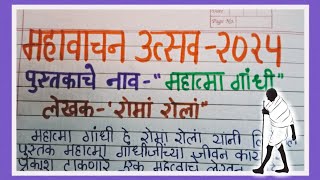 महावाचन उत्सव-२०२५
पुस्तकाचे नाव-"महात्मा गांधी"
लेखक-'रोमां रोलां'
महात्मा गांधी हे रोमा रोलां यांनी
पुस्तक महात्मा गांधीजींच्या जीवन
प्रकाश टाकणारे एक महत्वाचे लेखन